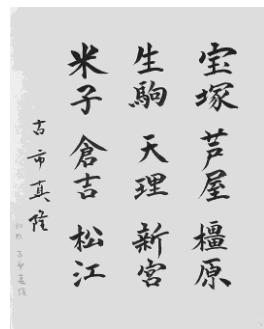 宝塚 芦屋 橿原
生駒 天理 新宮
米子 倉吉 松江
古市真隆